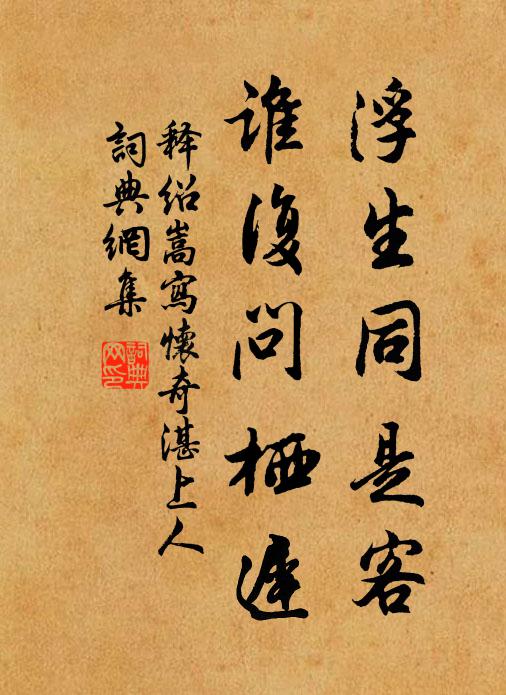 浮生同是客
谁復問栖遲
释绍嵩寫懷奇湛上人
詞典網集
詞典
网印